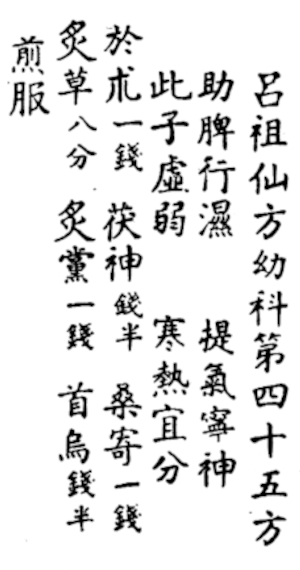 呂祖仙方幼科第四十五方
助脾行濕 提氣寧神
此子虛弱 寒熱宜分
於朮一錢 茯神錢半 桑寄一錢
炙草八分 炙黨一錢 首烏錢半
煎服